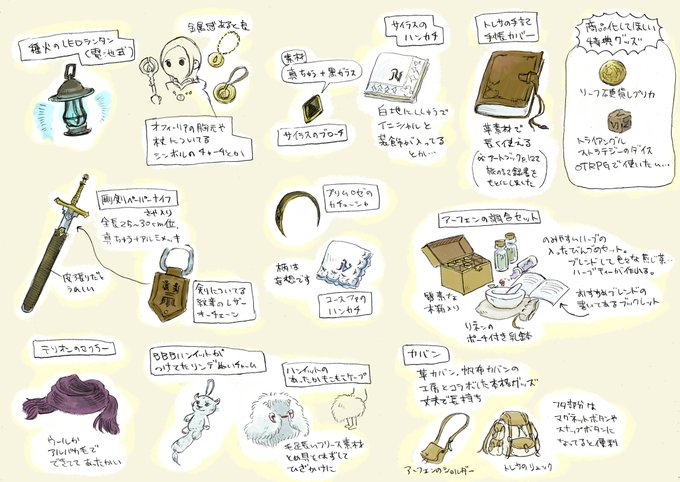 種火のLEDランタン
(電池式)
金属感あると良
オフィーリアの胸元や
杖についてる
シンボルのチャームとか
素材
真ちゅう+黒ガラス
サイラスのブローチ
サイラスの
ハンカチ
白地にししゅうで
イニシャルと
装飾が入ってる
とか…
トレサの手記
手帳カバー
革素材で
長く使える
アートブックP.12で
旅のすえ錆ens
もとにしました
商品化してほしい
特典グッズ
リーフ金貨レプリカ
トライアングル
ストラテジーのダイス
TRPGで使いたい…
剛剣ペーパーナイフ
さや入り
全長25~30cm位、
真ちゅう+アルミメッキ
皮張りだと
うれしい
剣についてる
紋章のレザー
キーチェーン
プリムロゼの
カチューシャ
柄は
妄想です
ユースファの
ハンカチ
アーフェンの調合セット
のみやすいハーブの
入ったびんづめのセット。
ブレンドして色々な感じ茶…
ハーブティーが作れる。
簡素な
木箱入り
リネンの
ポーチ付き乳鉢
おすすめブレンドの
書いてあるブックレット
テリオンのマフラー
ウールか
アルパカ毛で
できててあたたかい
BBBハンイットが
つけてたリンデぬいチャーム
ハンイットの
あったかもこもこケープ
毛足長いフリース素材
とめ具をはずして
ひざかけに
カバン
革カバン、帆布カバンの
工房とコラボした本格グッズ
丈夫で長持ち
アーフェンのショルダー
トレサのリュック
フタ部分は
マグネットボタンや
スナップボタンに
なってると便利